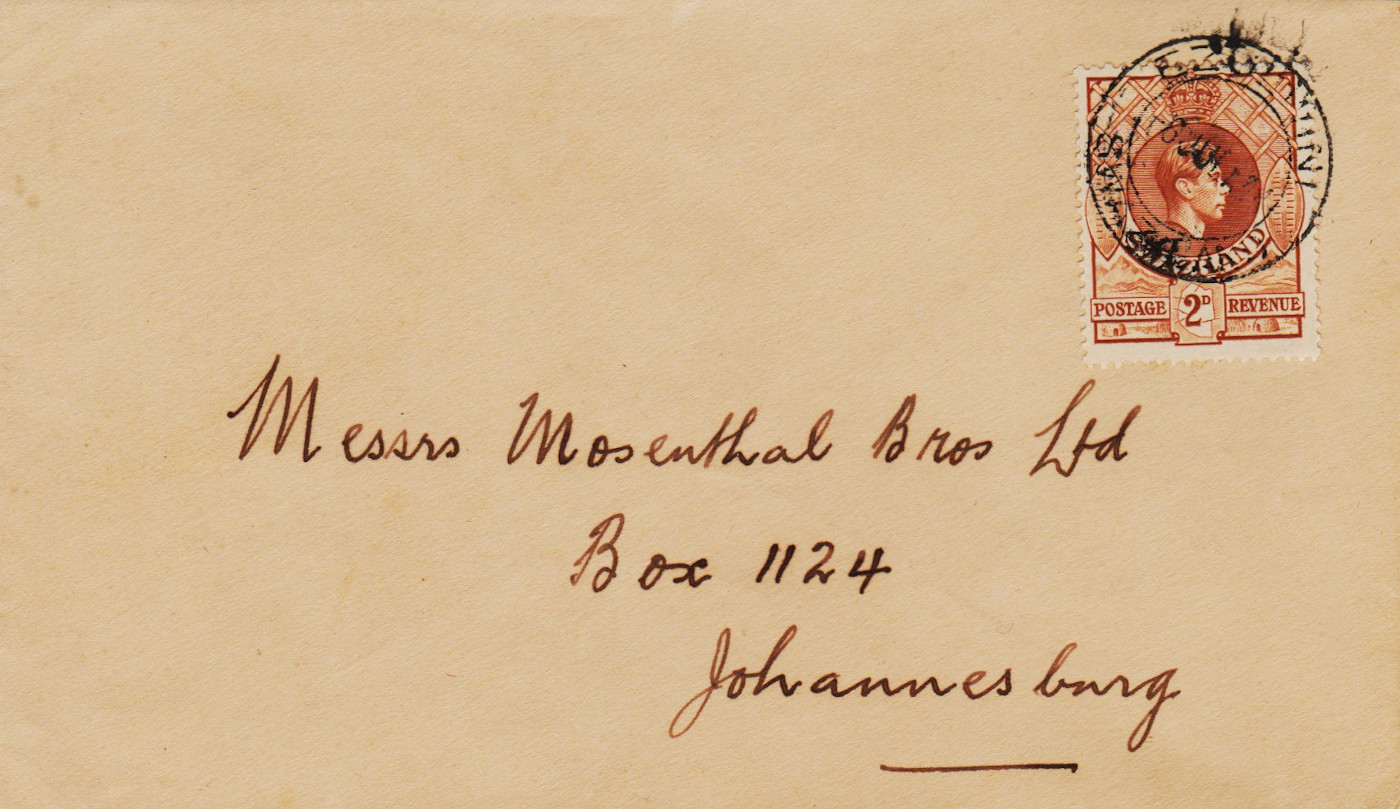 SWAZILAND
POSTAGE 2D REVENUE
Messrs Mosenthal Bros Ltd
Box 1124
Johannesburg